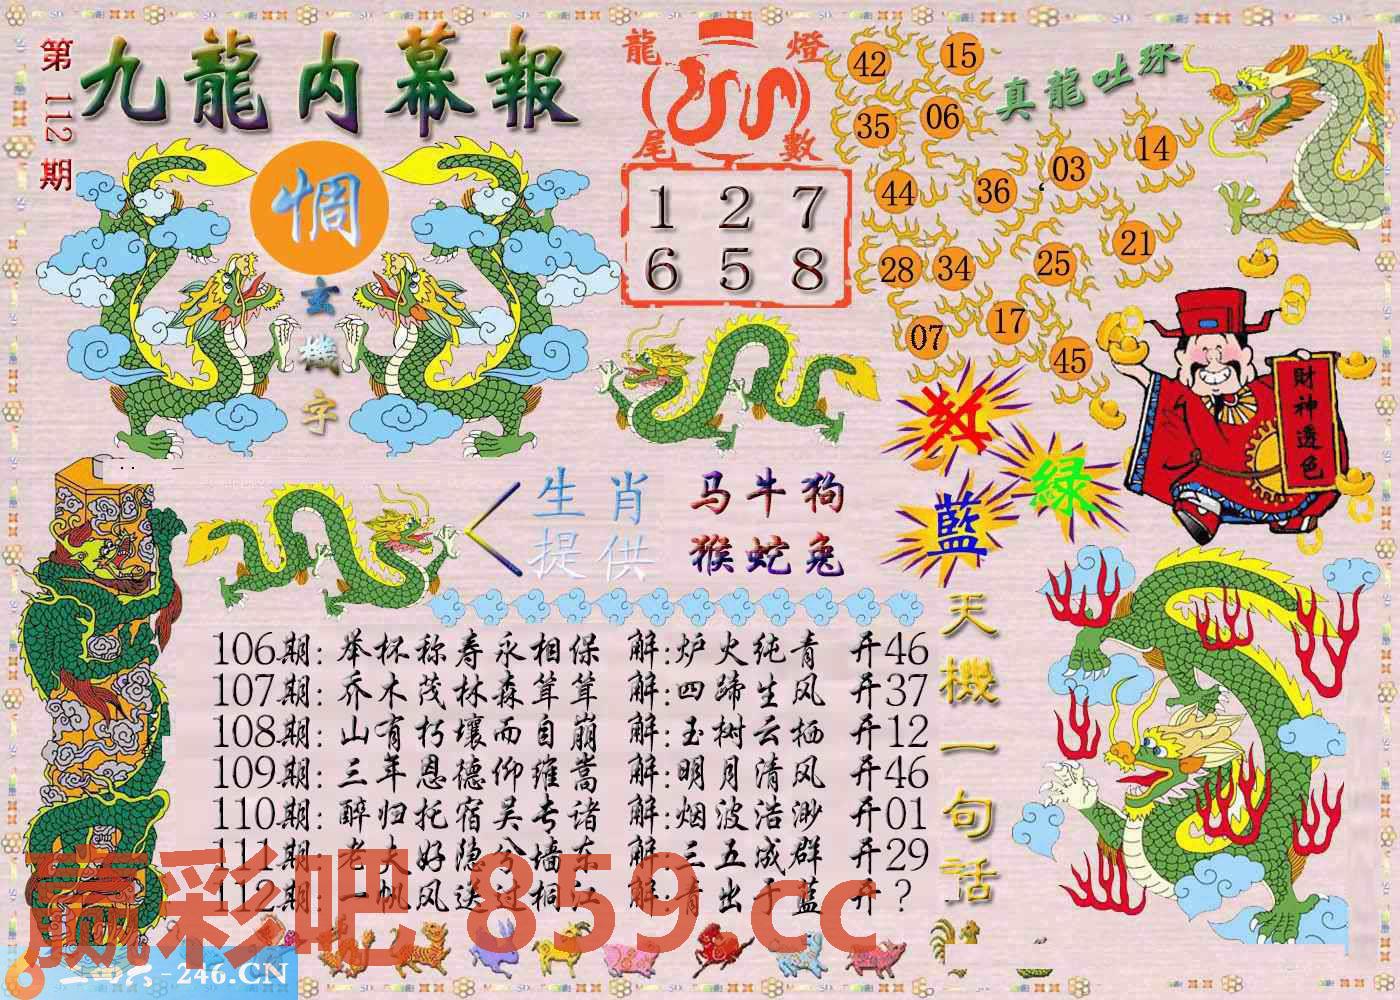 第112期
九龍内幕報
惆
玄機字
龍燈
尾數
1 2 7
6 5 8
真龍吐珠
42 15
35 06
44 36 03 14
28 34 25 21
07 17 45
財神透色
紅
绿
藍
生肖
提供
马牛狗
猴蛇兔
天機一句話
106期:举杯称寿永相保 解:炉火纯青 开46
107期:乔木茂林森茸茸 解:四蹄生风 开37
108期:山有朽壤而自崩 解:玉树云栖 开12
109期:三年恩德仰维嵩 解:明月清风 开46
110期:醉归托宿吴专诸 解:烟波浩渺 开01
111期:老夫好隐兮墙东 解:三五成群 开29
112期:一帆风送过桐江 解:青出于蓝 开?
赢彩吧 859.cc
二四六-246.CN